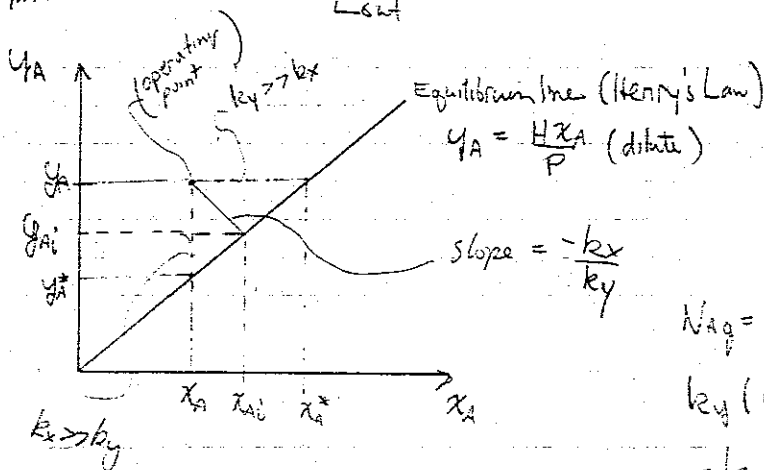 Lout
y_A
(operating point)
ky>>kx
Equilibrium line (Henry's Law)
y_A = Hx_A/P (dilute)
y_A
y_Ai
y_A*
slope = -kx/ky
N_Ag =
ky (
x_A x_Ai x_A* x_A
kx>>ky